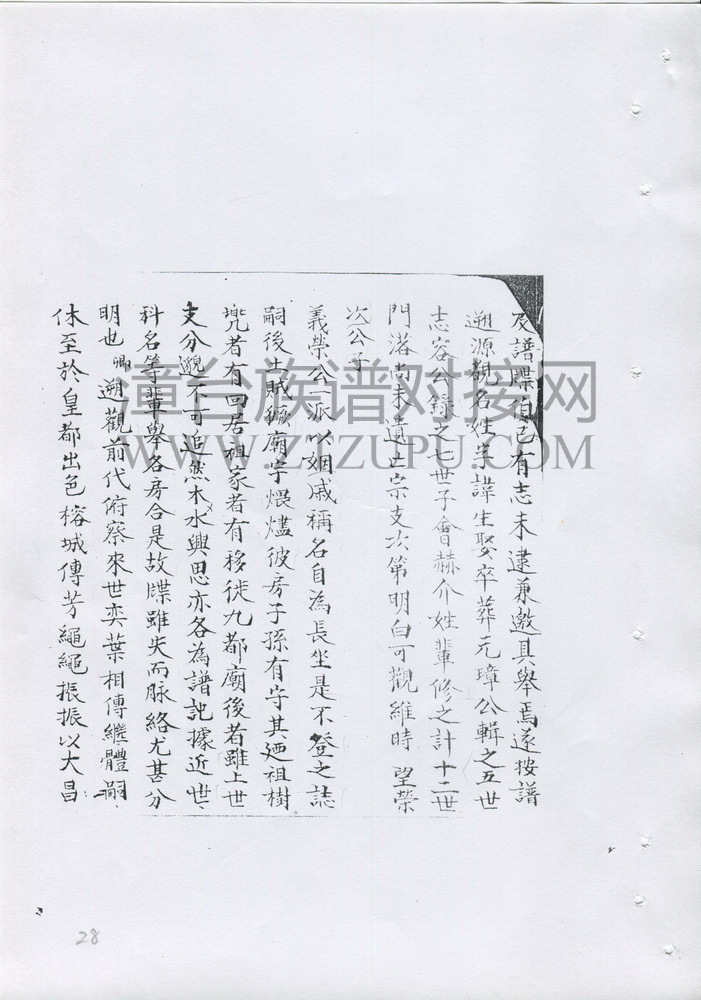 及譜牒伯已有志未逮兼邀具舉焉遂按譜
遡源觀名姓字諱生娶卒葬元璋公輯之五世
志容公錄之七世子會赫介姓輩修之計十二世
門洛尚未遺止宗支次第明白可觀維時 望榮
次公子
義榮公一派以姻戚稱名自為長坐是不登之誌
嗣後土賊 廟宇煨燼彼房子孫有守其廼祖樹
兠者有回居祖家者有移徙九都廟後者雖上世
支分邈不可追然木水興思亦各為譜記據近世
科名等輩舉各房合是故牒雖失而脉絡尤甚分
明也卿遡觀前代俯察來世奕葉相傳繼體嗣
休至於皇都出色榕城傳芳繩繩振振以大昌
漳台族谱对接网
WWW.ZTZUPU.COM
28